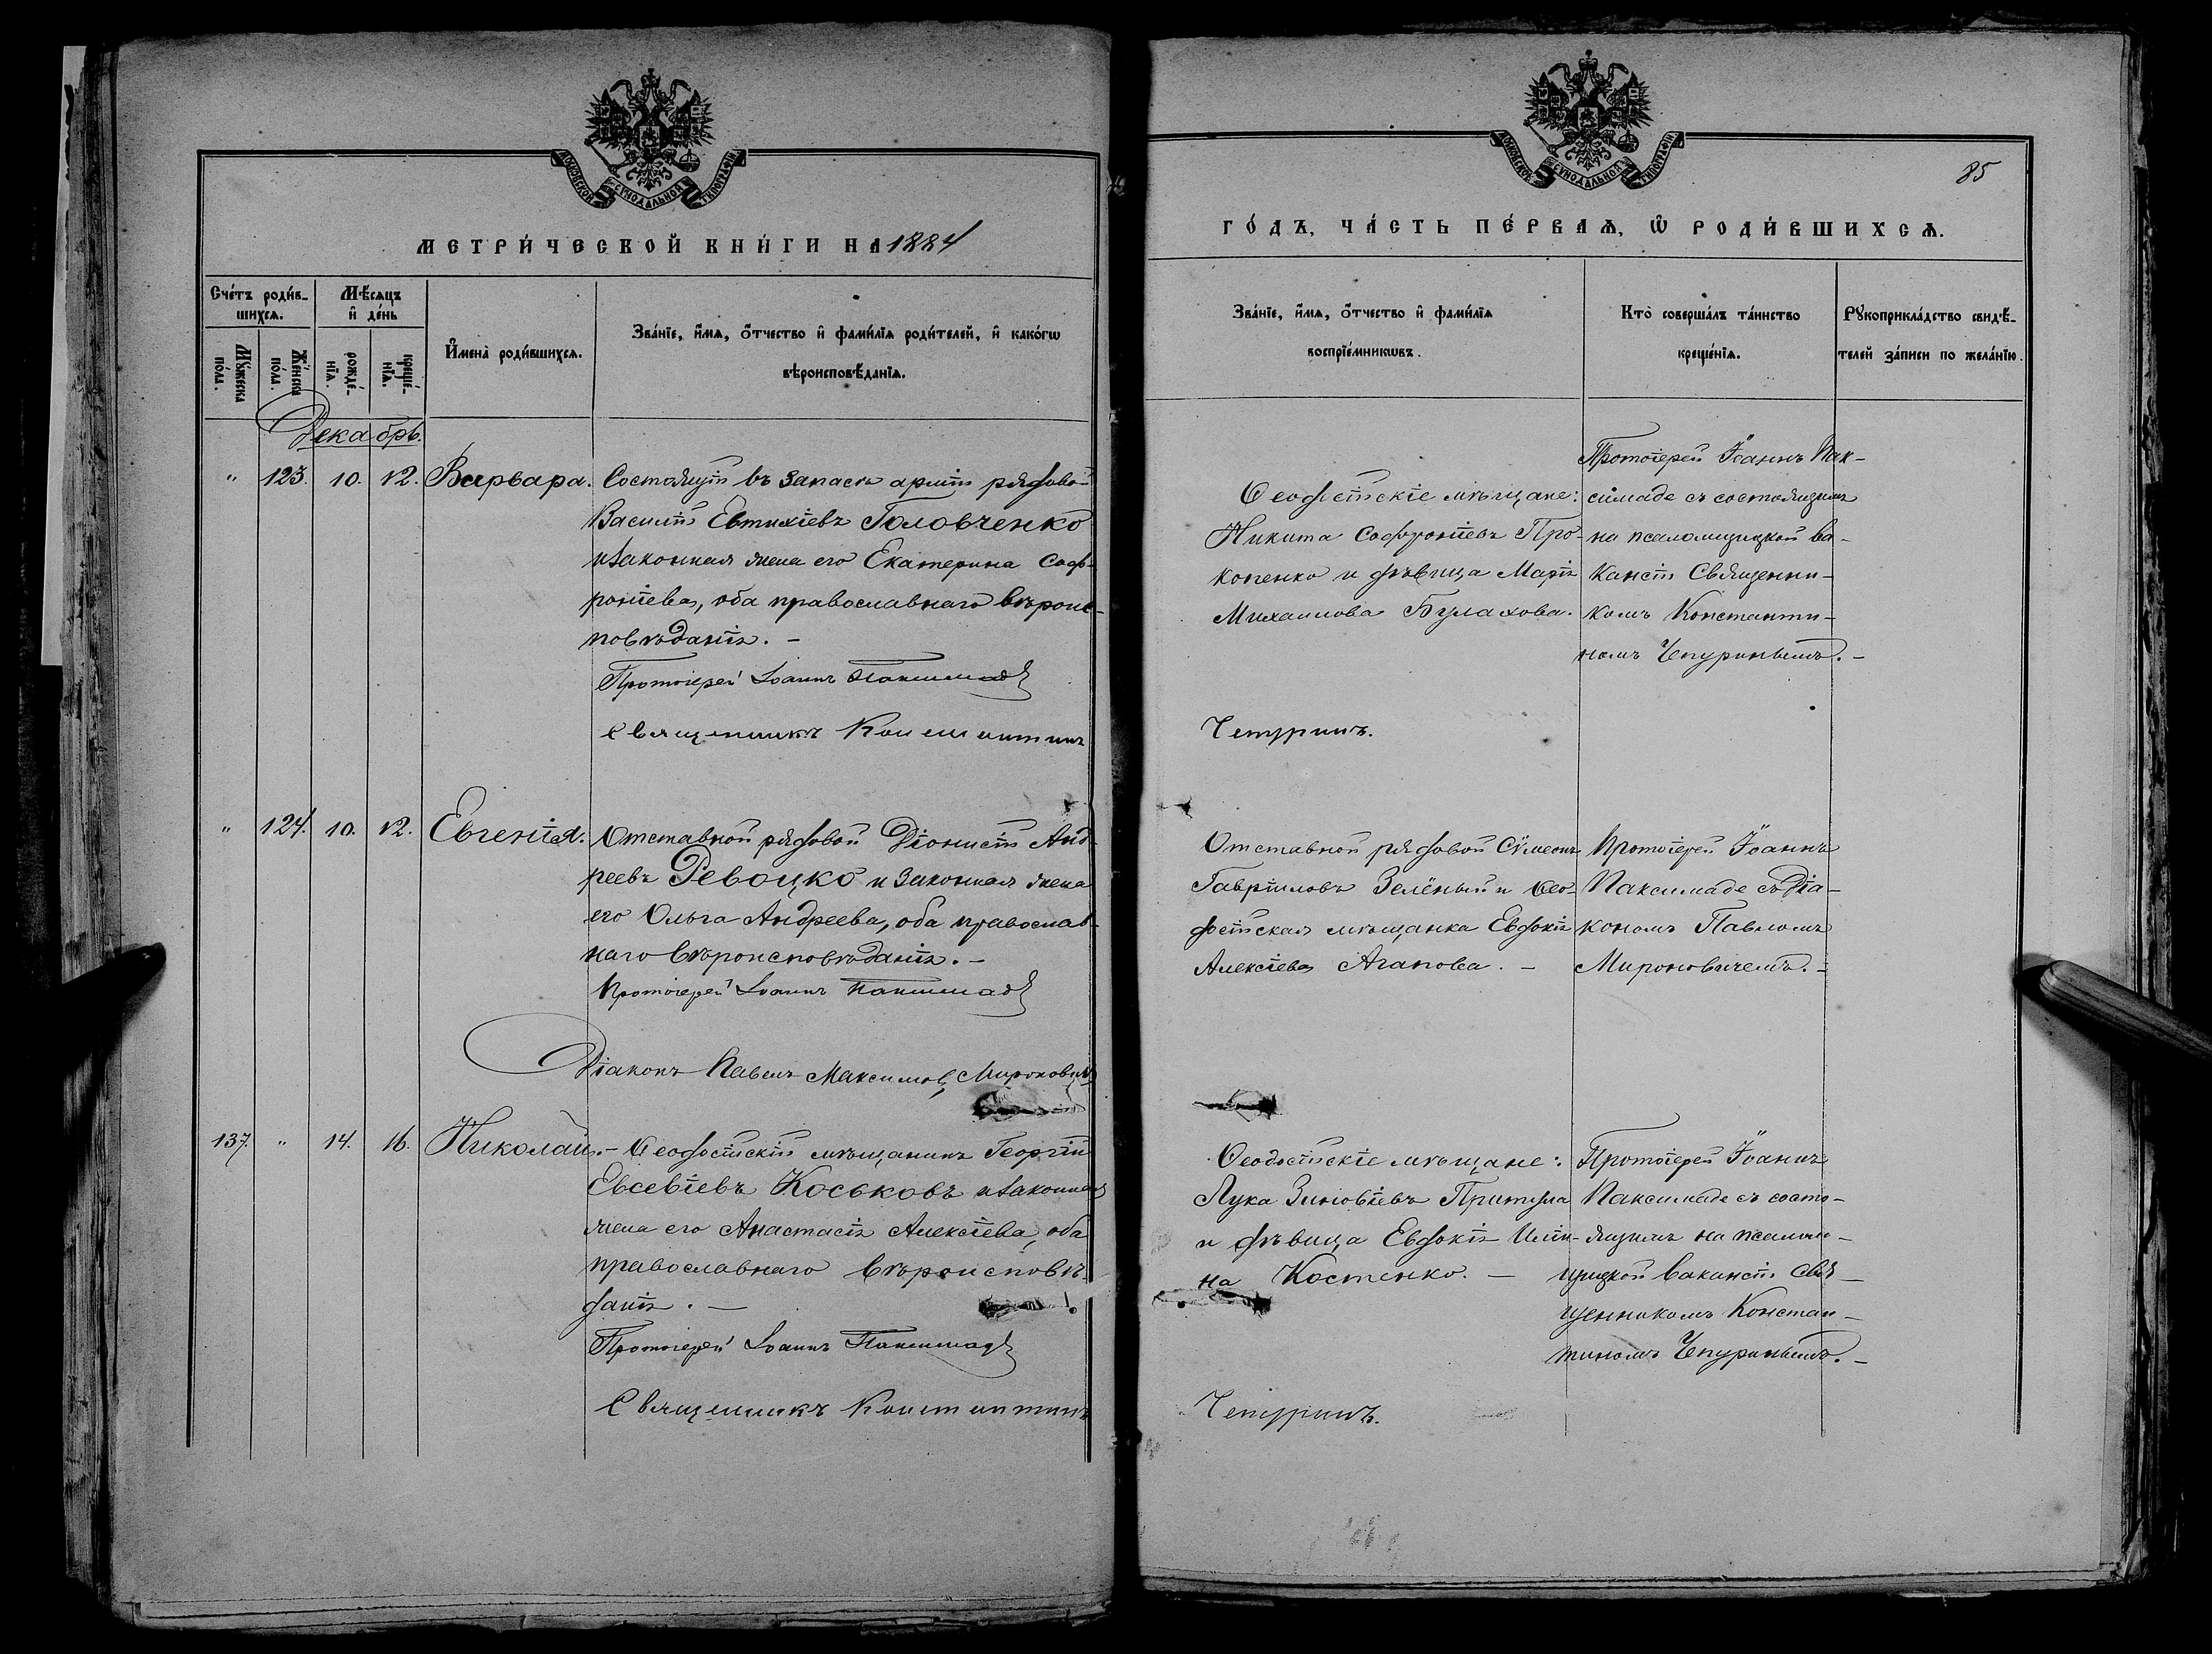 МОСКОВСКОЙ СѴНОДАЛЬНОЙ ТИПОГРАФІИ
МЕТРИ́ЧЕСКОЙ КНИ́ГИ НА 1884
Сче́тъ роди́в-
шихсѧ.
Мѣ́сѧцъ
и҆ де́нь
И҆мена̀ роди́вшихсѧ.
Зва́нїе, и҆́мѧ, ѻ҆́тчество и҆ фами́лїѧ роди́телей, и҆ како́гѡ
вѣроисповѣ́данїѧ.
Мꙋ́жеска
по́ла.
Же́нска
по́ла.
рожде́-
нїѧ.
креще́-
нїѧ.
Декабрь.
" 123. 10. 12. Варвара. Состоящій въ запасѣ арміи рядовой
Василій Евтихіевъ Головченко
и законная жена его Екатерина Соф-
роніева, оба православнаго вѣроис-
повѣданія. -
Протоіерей Іоаннъ Паксимаде
Священникъ Константинъ
" 124. 10. 12. Евгенія. Отставной рядовой Діонисій Анд-
реевъ Ревоцко и законная жена
его Ольга Андреева, оба православ-
наго вѣроисповѣданія. -
Протоіерей Іоаннъ Паксимаде
Діаконъ Павелъ Максимов Мироновичъ
137. " 14. 16. Николай. - Ѳеодосійскій мѣщанинъ Георгій
Евсевіевъ Коськовъ и законная
жена его Анастасія Алексіева, оба
православнаго вѣроисповѣ-
данія. -
Протоіерей Іоаннъ Паксимаде
Священникъ Константинъ
МОСКОВСКОЙ СѴНОДАЛЬНОЙ ТИПОГРАФІИ
85
ГО́ДЪ, ЧА́СТЬ ПЕ́РВАѦ, Ѡ҆ РОДИ́ВШИХСѦ.
Зва́нїе, и҆́мѧ, ѻ҆́тчество и҆ фами́лїѧ
воспрїе́мникѡвъ.
Кто̀ соверша́лъ та́инство
креще́нїѧ.
Рꙋкоприкла́дство свидѣ́-
телей за́писи по жела́нїю.
Ѳеодосійскіе мѣщане:
Никита Софроніевъ Про-
копенко и дѣвица Марія
Михаилова Булахова.
Протоіерей Іоаннъ Пак-
симаде съ состоящимъ
на псаломщицкой ва-
кансіи Священни-
комъ Константи-
номъ Чепуринымъ. -
Чепуринъ.
Отставной рядовой Сѵмеонъ
Гавріиловъ Зелёный и Ѳео-
досійская мѣщанка Евдокія
Алексіева Агапова. -
Протоіерей Іоаннъ
Паксимаде съ Діа-
кономъ Павломъ
Мироновичемъ. -
Ѳеодосійскіе мѣщане:
Лука Зиновіевъ Притула
и дѣвица Евдокія Иліи-
на Костенко. -
Протоіерей Іоаннъ
Паксимаде съ состо-
ящимъ на псалом-
щицкой вакансіи Свя-
щенникомъ Констан-
тиномъ Чепуринымъ. -
Чепуринъ.